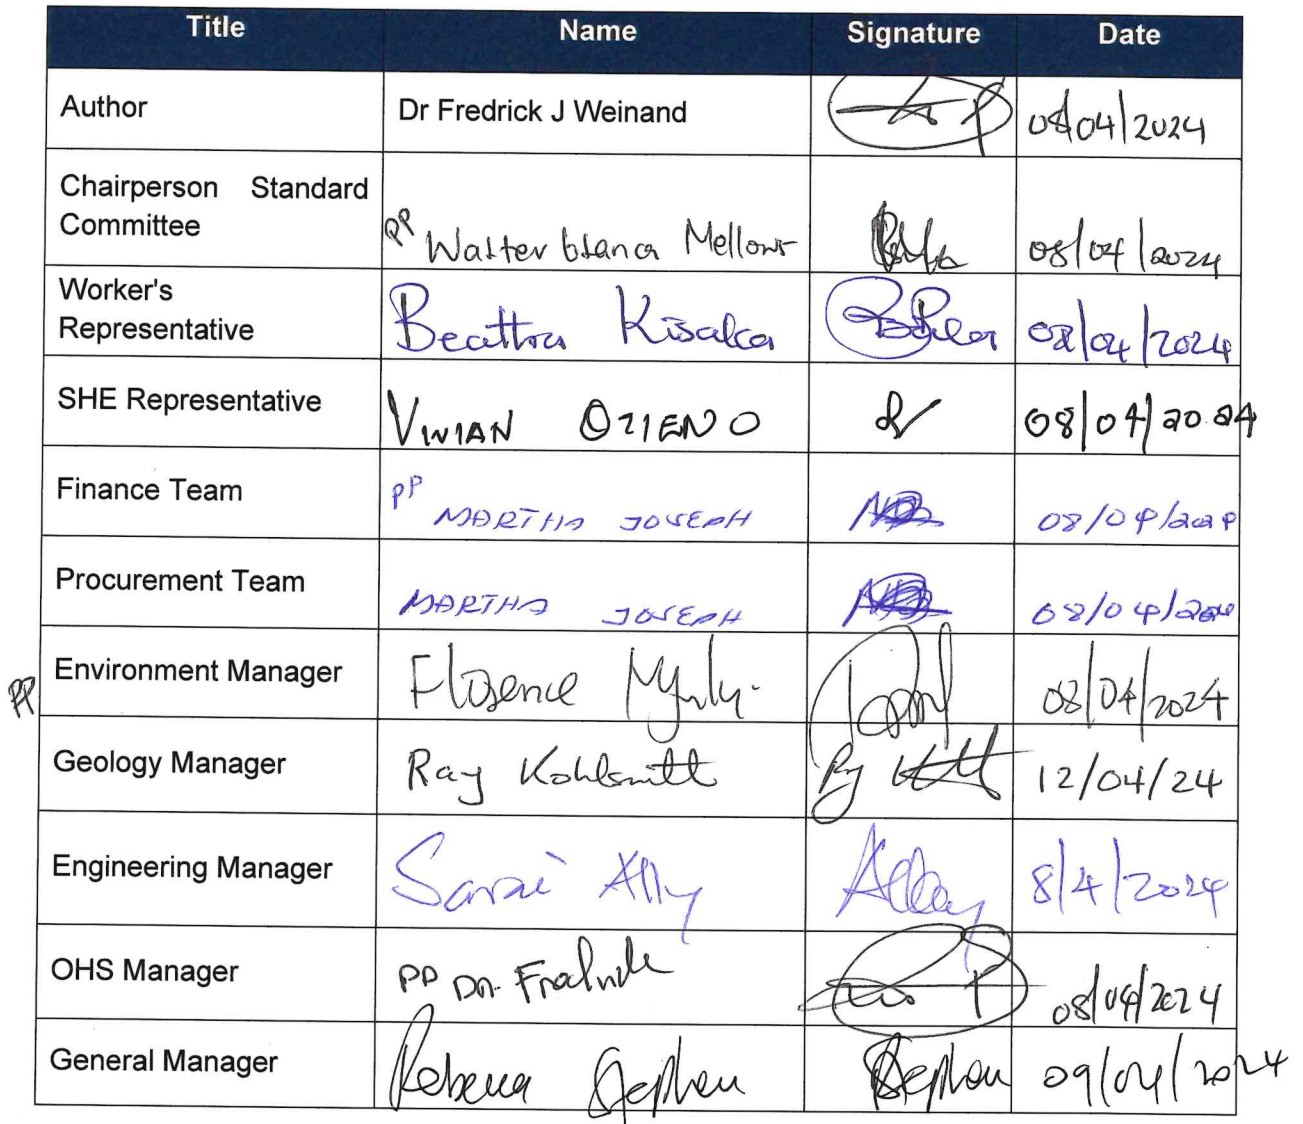 Title Name Signature Date
Author Dr Fredrick J Weinand 08/04/2024
Chairperson Standard
Committee PP Walter Mellows 08/04/2024
Worker's
Representative Kisaka 08/04/2024
SHE Representative VIVIAN OZIENO 08/04/2024
Finance Team PP MARTHA JOSEPH 08/04/2024
Procurement Team MARTHA JOSEPH 08/04/2024
PP Environment Manager Florence 08/04/2024
Geology Manager Ray 12/04/24
Engineering Manager Ally 8/4/2024
OHS Manager PP Dr. 08/04/2024
General Manager Rebecca Stephen Stephen 09/04/2024